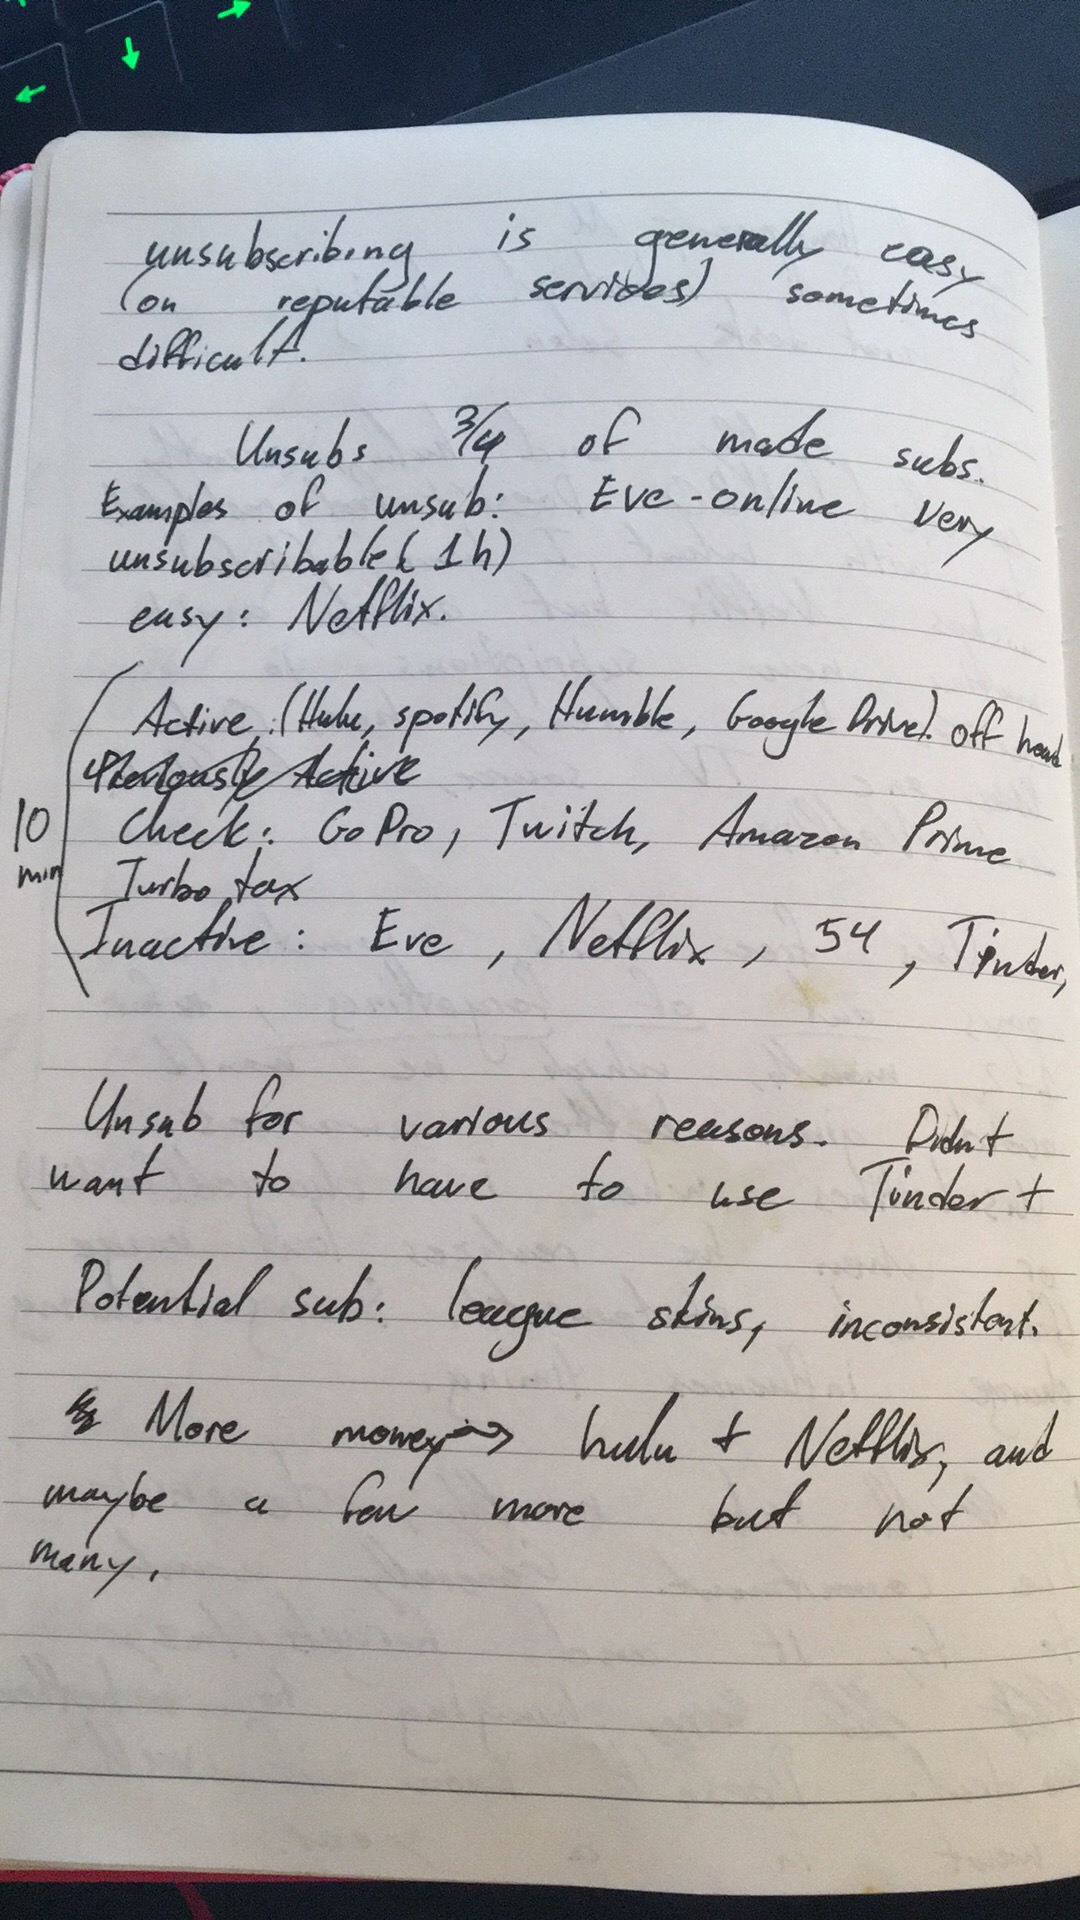 unsubscribing is generally easy
(on reputable services) sometimes
difficult.
Unsubs 3/4 of made subs.
Examples of unsub: Eve-online very
unsubscribable ( 1h)
easy: Netflix.
Active: (Hulu, spotify, Humble, Google Drive). off head
Previously Active
10 min
Check: GoPro, Twitch, Amazon Prime
Turbo tax
Inactive: Eve, Netflix, 54, Tinder,
Unsub for various reasons. Didnt
want to have to use Tinder +
Potential sub: league skins, inconsistent.
More money → hulu + Netflix, and
maybe a few more but not
many.